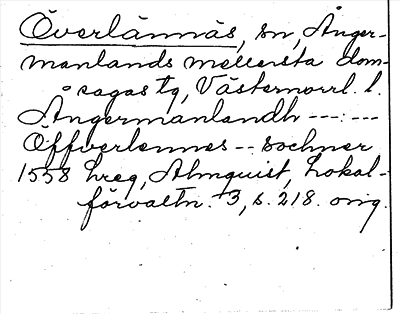 Överlännäs, sn, Ånger-
manlands mellersta dom-
sagas tg, Västernorrl. l.
Ångermanlandh ---:---
Öffverlennes -- sochner
1558 hreg, Almquist, Lokal-
förvaltn. 3, s. 218. orig.